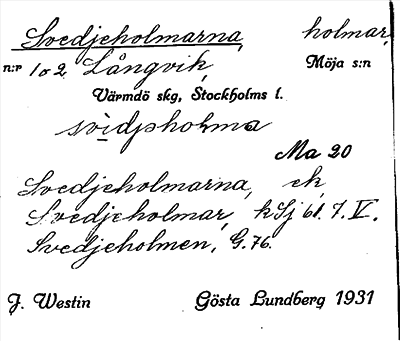 Svedjeholmarna, holmar,
n:r 1 o 2 Långvik, Möja s:n
Värmdö skg, Stockholms l.
svidjɒholma
Ma 20
Svedjeholmarna, ek,
Svedjeholmar, kSj 61. 7. V.
Svedjeholmen, G. 76.
J. Westin Gösta Lundberg 1931